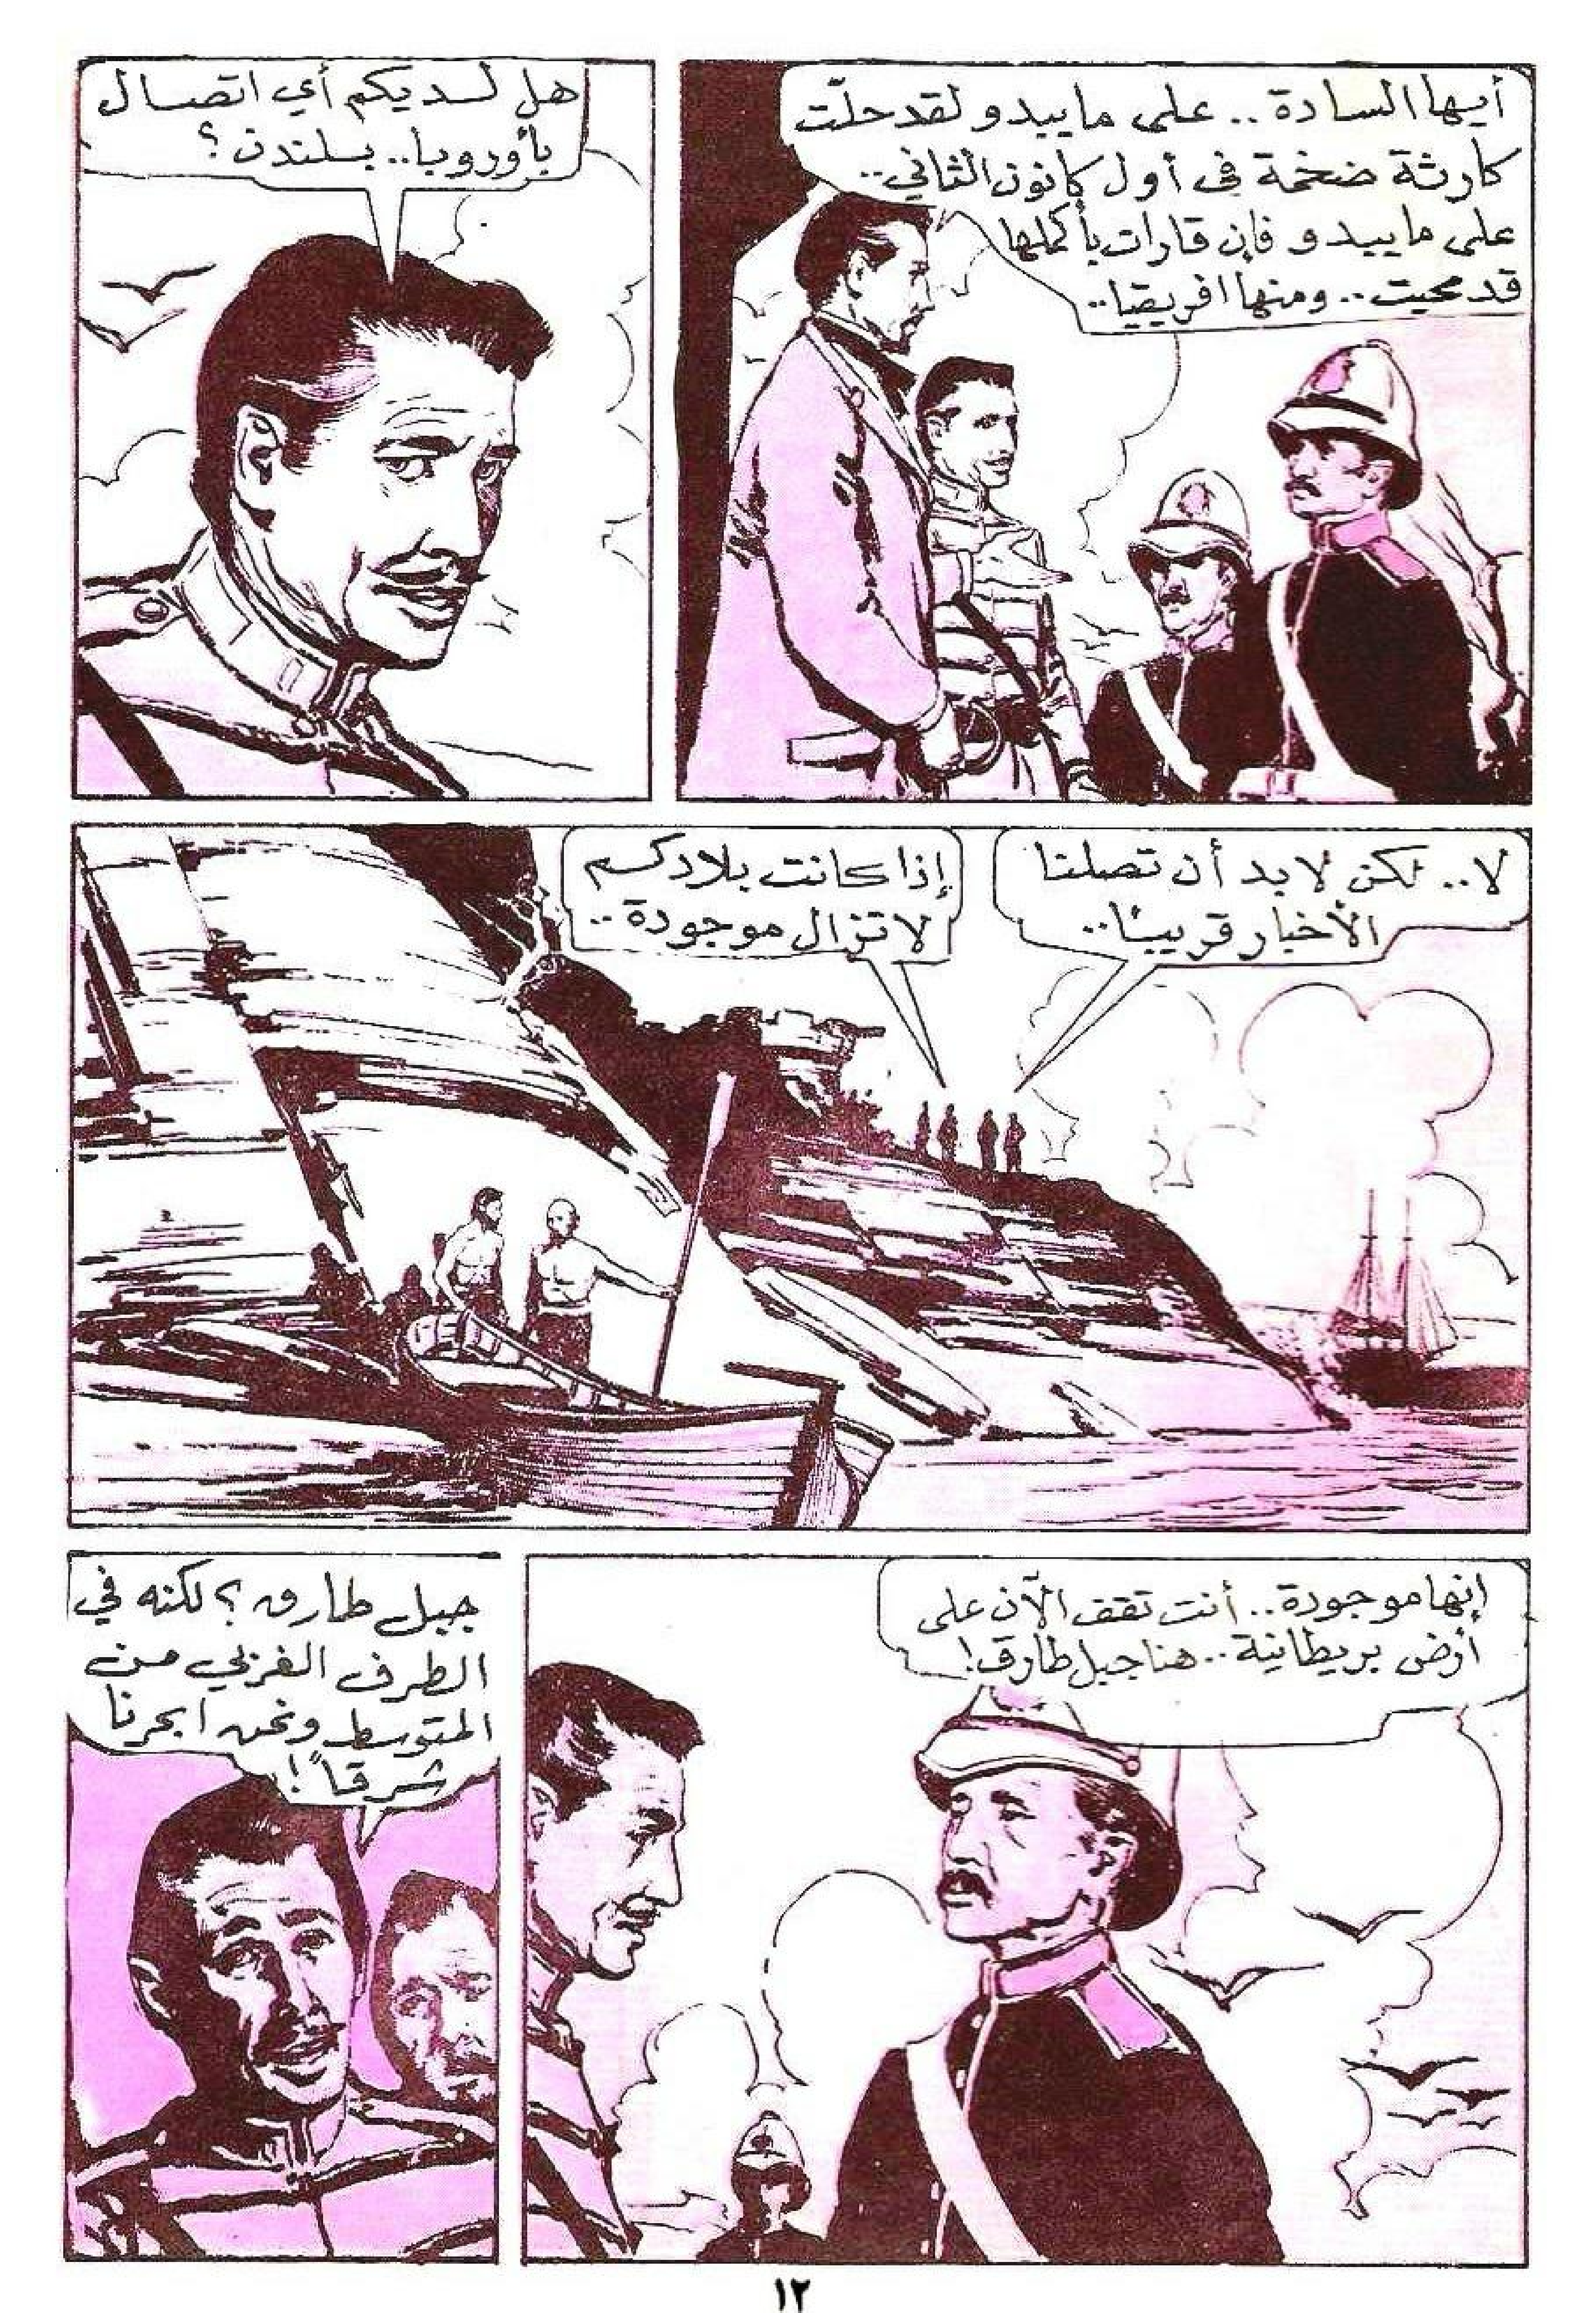 أيها السادة .. على ما يبدو لقد حلّت
كارثة ضخمة في أول كانون الثاني ..
على ما يبدو فإن قارات بأكملها
قد محيت .. ومنها افريقيا ..
هل لديكم أي اتصال
بأوروبا .. بلندن ؟
لا .. لكن لا بد أن تصلنا
الأخبار قريبًا ..
إذا كانت بلادكم
لا تزال موجودة ..
إنها موجودة .. أنت تقف الآن على
أرض بريطانية .. هنا جبل طارق !
جبل طارق ؟ لكنه في
الطرف الغربي من
المتوسط ونحن ابحرنا
شرقاً !
١٢